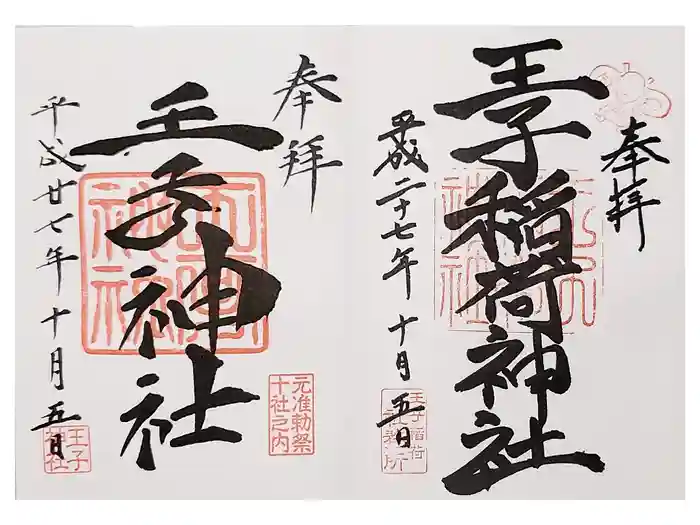 奉拝
王子神社
平成廿七年十月五日
王子神社
元准勅祭
十社之内
王子
神社
奉拝
王子稲荷神社
平成二十七年十月五日
王子稲荷
社務所